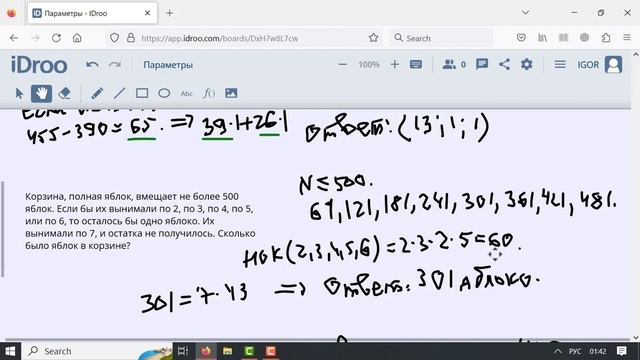 Параметры - IDroo
https://app.idroo.com/boards/DxH7w8L7cw
iDroo
Параметры
100%
IGOR
Aa
f(x)
455-390=65. => 39·1+26·1
Ответ: (13; 1; 1)
Корзина, полная яблок, вмещает не более 500
яблок. Если бы их вынимали по 2, по 3, по 4, по 5,
или по 6, то осталось бы одно яблоко. Их
вынимали по 7, и остатка не получилось. Сколько
было яблок в корзине?
N≤500.
61, 121, 181, 241, 301, 361, 421, 481.
НОК(2,3,4,5,6)=2·3·2·5=60.
301=7·43 => Ответ: 301 яблоко.
РУС
01:42